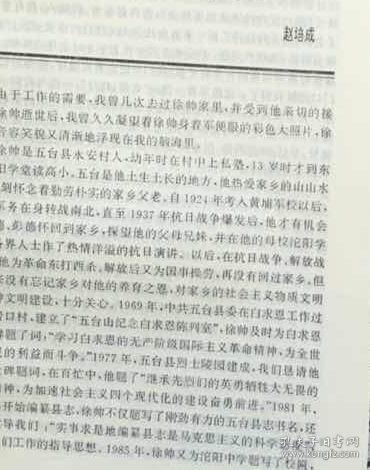 赵培成
由于工作的需要，我曾几次去过徐帅家里，并受到他亲切的接
徐帅逝世后，我曾久久凝望着徐帅身着军便服的彩色大照片，徐
音容笑貌又清晰地浮现在我的脑海里。
徐帅是五台县永安村人，幼年时在村中上私塾，13岁时才到东
阳学堂读高小。五台是他土生土长的地方，他热爱家乡的山山水
到怀念着勤劳朴实的家乡父老。自1924年考入黄埔军校以后，
军务在身转战南北，直至1937年抗日战争爆发后，他才有机会
、彭德怀回到家乡，探望他的父母兄妹，并在他的母校沱阳学
各界人士作了热情洋溢的抗日演讲。以后，在抗日战争、解放战
他为革命东打西杀，解放后又为国事操劳，再没有回过家乡。但
来没有忘记家乡对他的养育之恩，对家乡的社会主义物质文明
神文明建设，十分关心。1969年，中共五台县委在白求恩工作过
岩口村，建立了“五台山纪念白求恩陈列室”，徐帅及时为白求恩
碑题了词：“学习白求恩的无产阶级国际主义革命精神，为全世
民的利益而斗争。”1977年，五台县烈士陵园建成，我们恳请他
士碑题词，在百忙中，他题了“继承先烈们的英勇牺牲大无畏的
精神，为加速社会主义四个现代化的建设奋勇前进。”1981年，
县开始编纂县志，徐帅不仅题写了刚劲有力的五台县志书名，还
导我们，“实事求是地编纂县志是马克思主义的科学
们工作的指导思想。1985年，徐帅又为沱阳中学题写了校